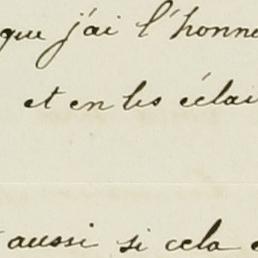 que j'ai l'honne
et en les éclai
aussi si cela